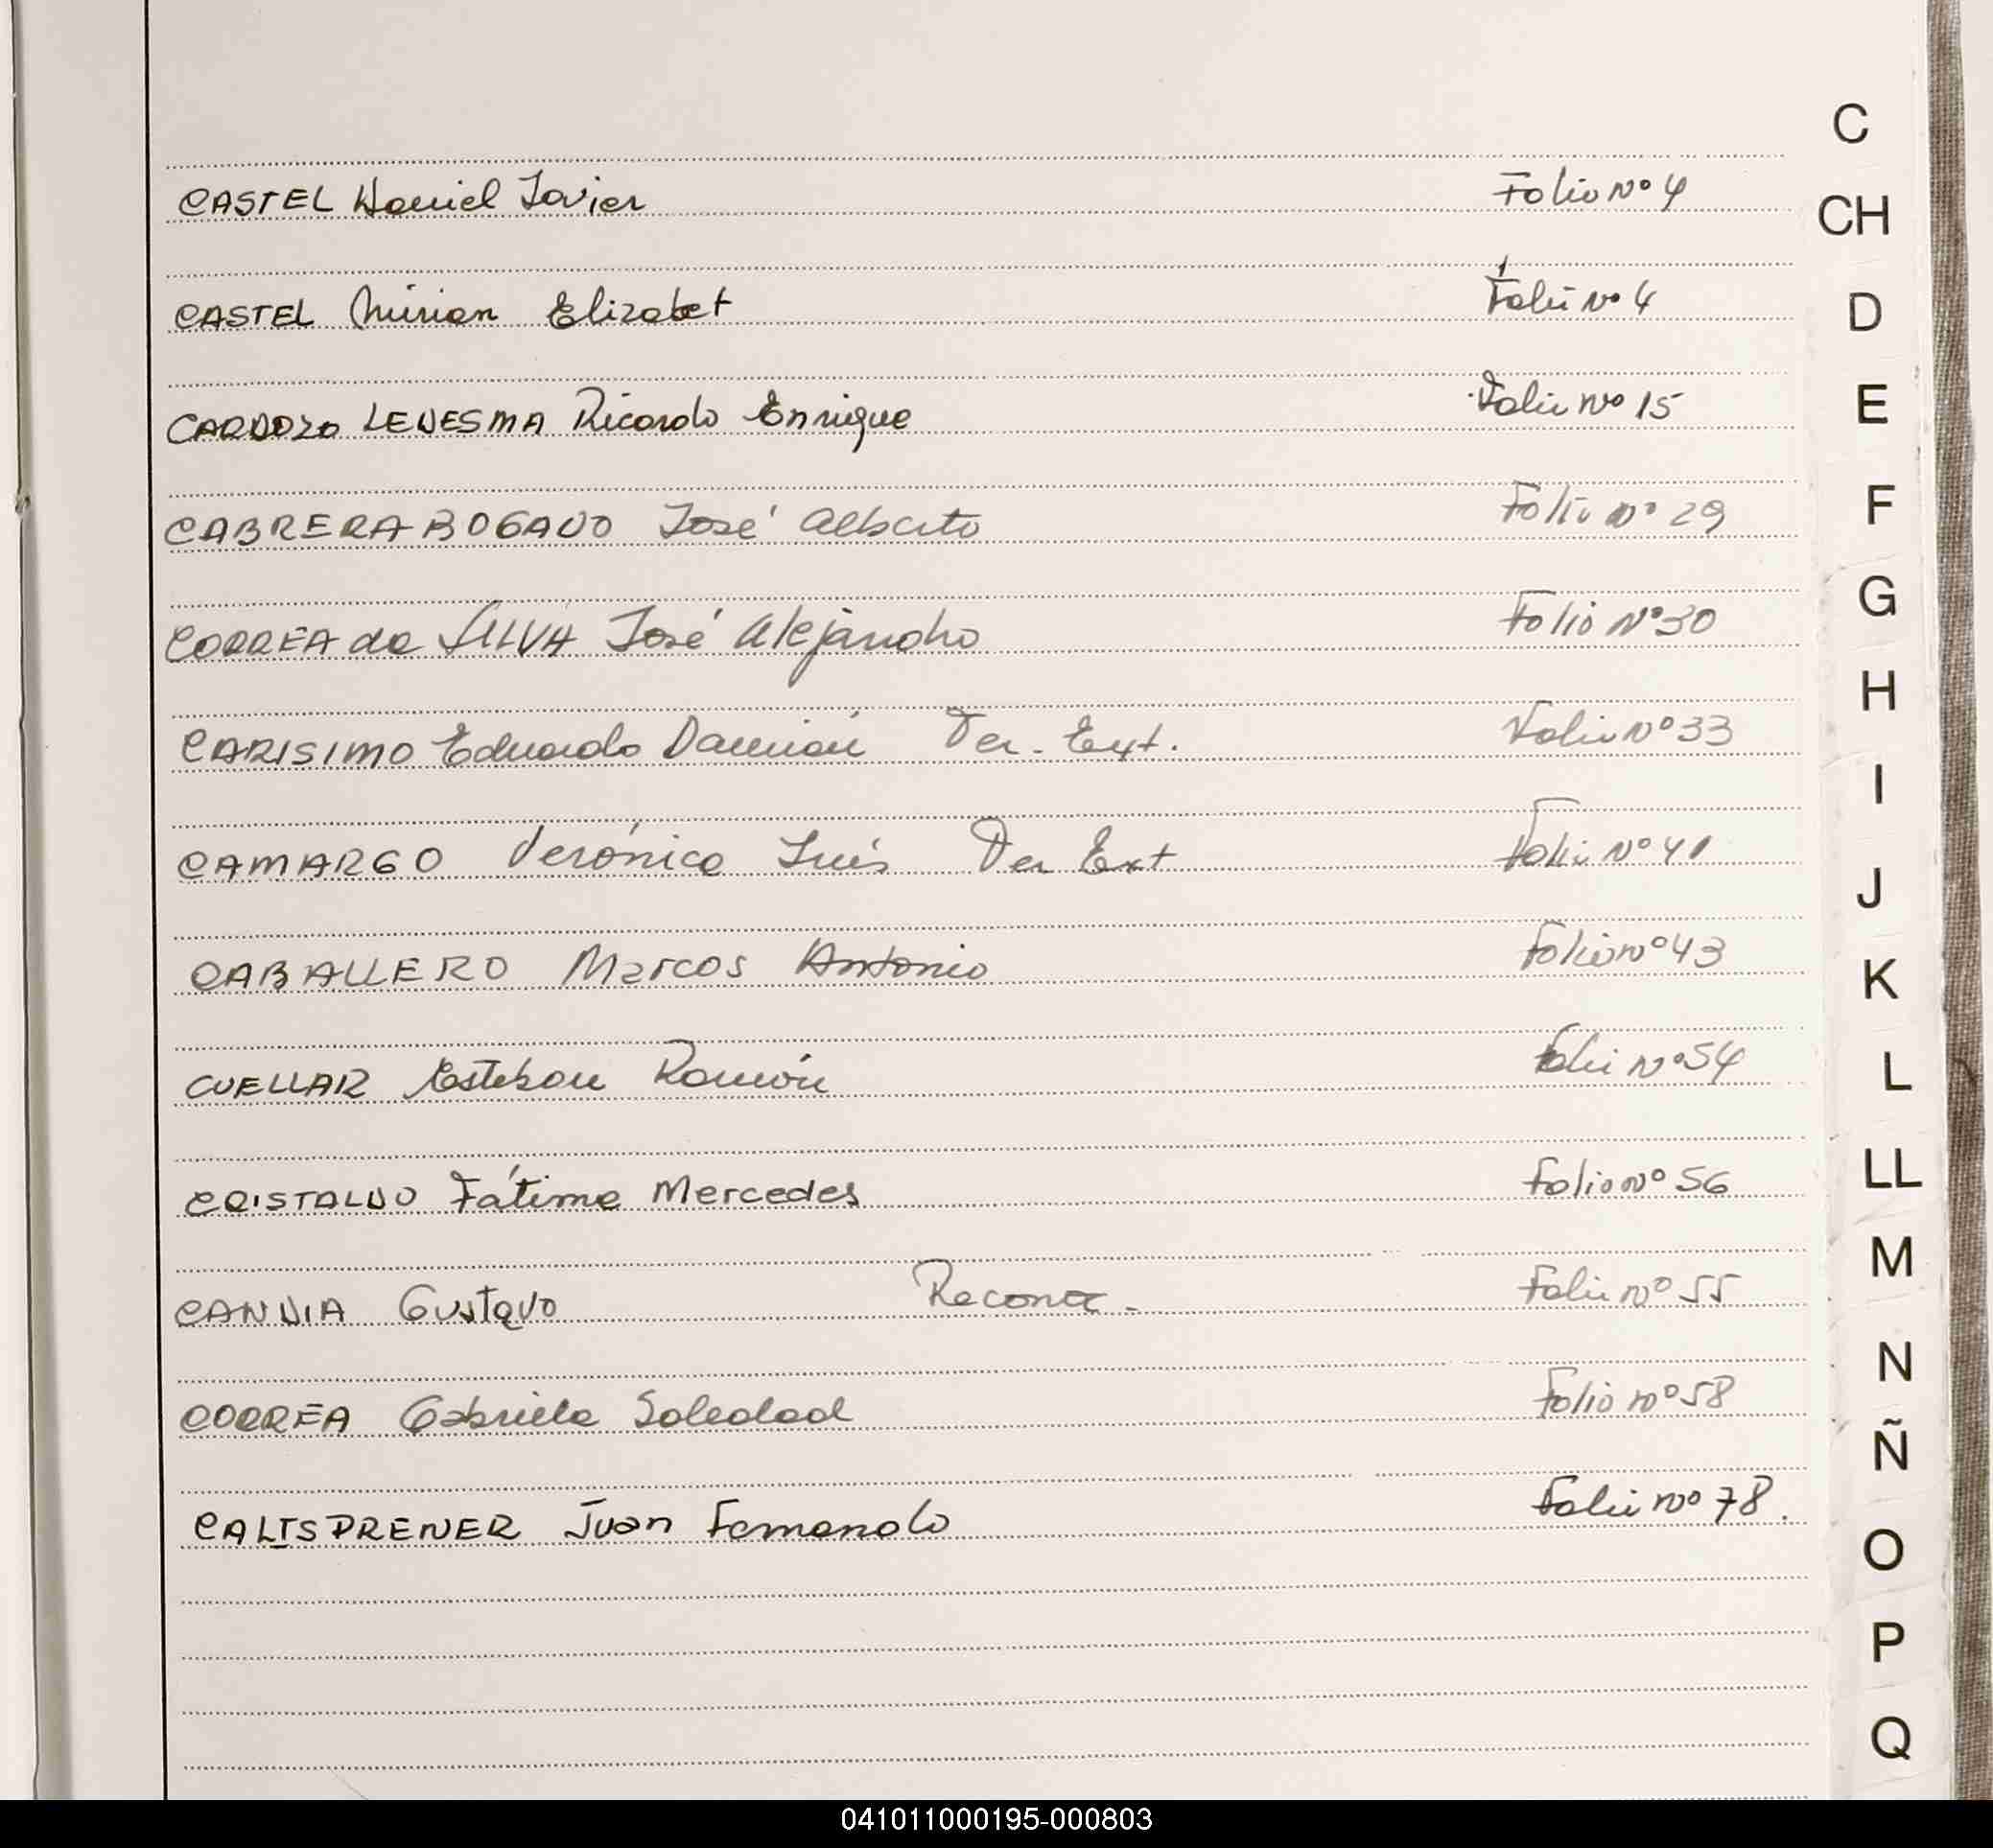 C
CASTEL Daniel Javier Folio Nº 4
CH
CASTEL Mirian Elizabet Folio Nº 4
D
CARDOZO LEDESMA Ricardo Enrique Folio Nº 15
E
CABRERA BOGADO José Alberto Folio Nº 29
F
CORREA da SILVA José Alejandro Folio Nº 30
G
CARISIMO Eduardo Damián Ter. Ext. Folio Nº 33
H
I
CAMARGO Verónica Inés Ter Ext Folio Nº 41
J
CABALLERO Marcos Antonio Folio nº 43
K
CUELLAR Esteban Ramón Folio Nº 54
L
CRISTALDO Fátima Mercedes Folio nº 56
LL
CANDIA Gustavo Reconoc. Folio nº 55
M
N
CORREA Gabriela Soledad Folio nº 58
Ñ
Juan Fernando Folio nº 78.
O
P
Q
041011000195-000803